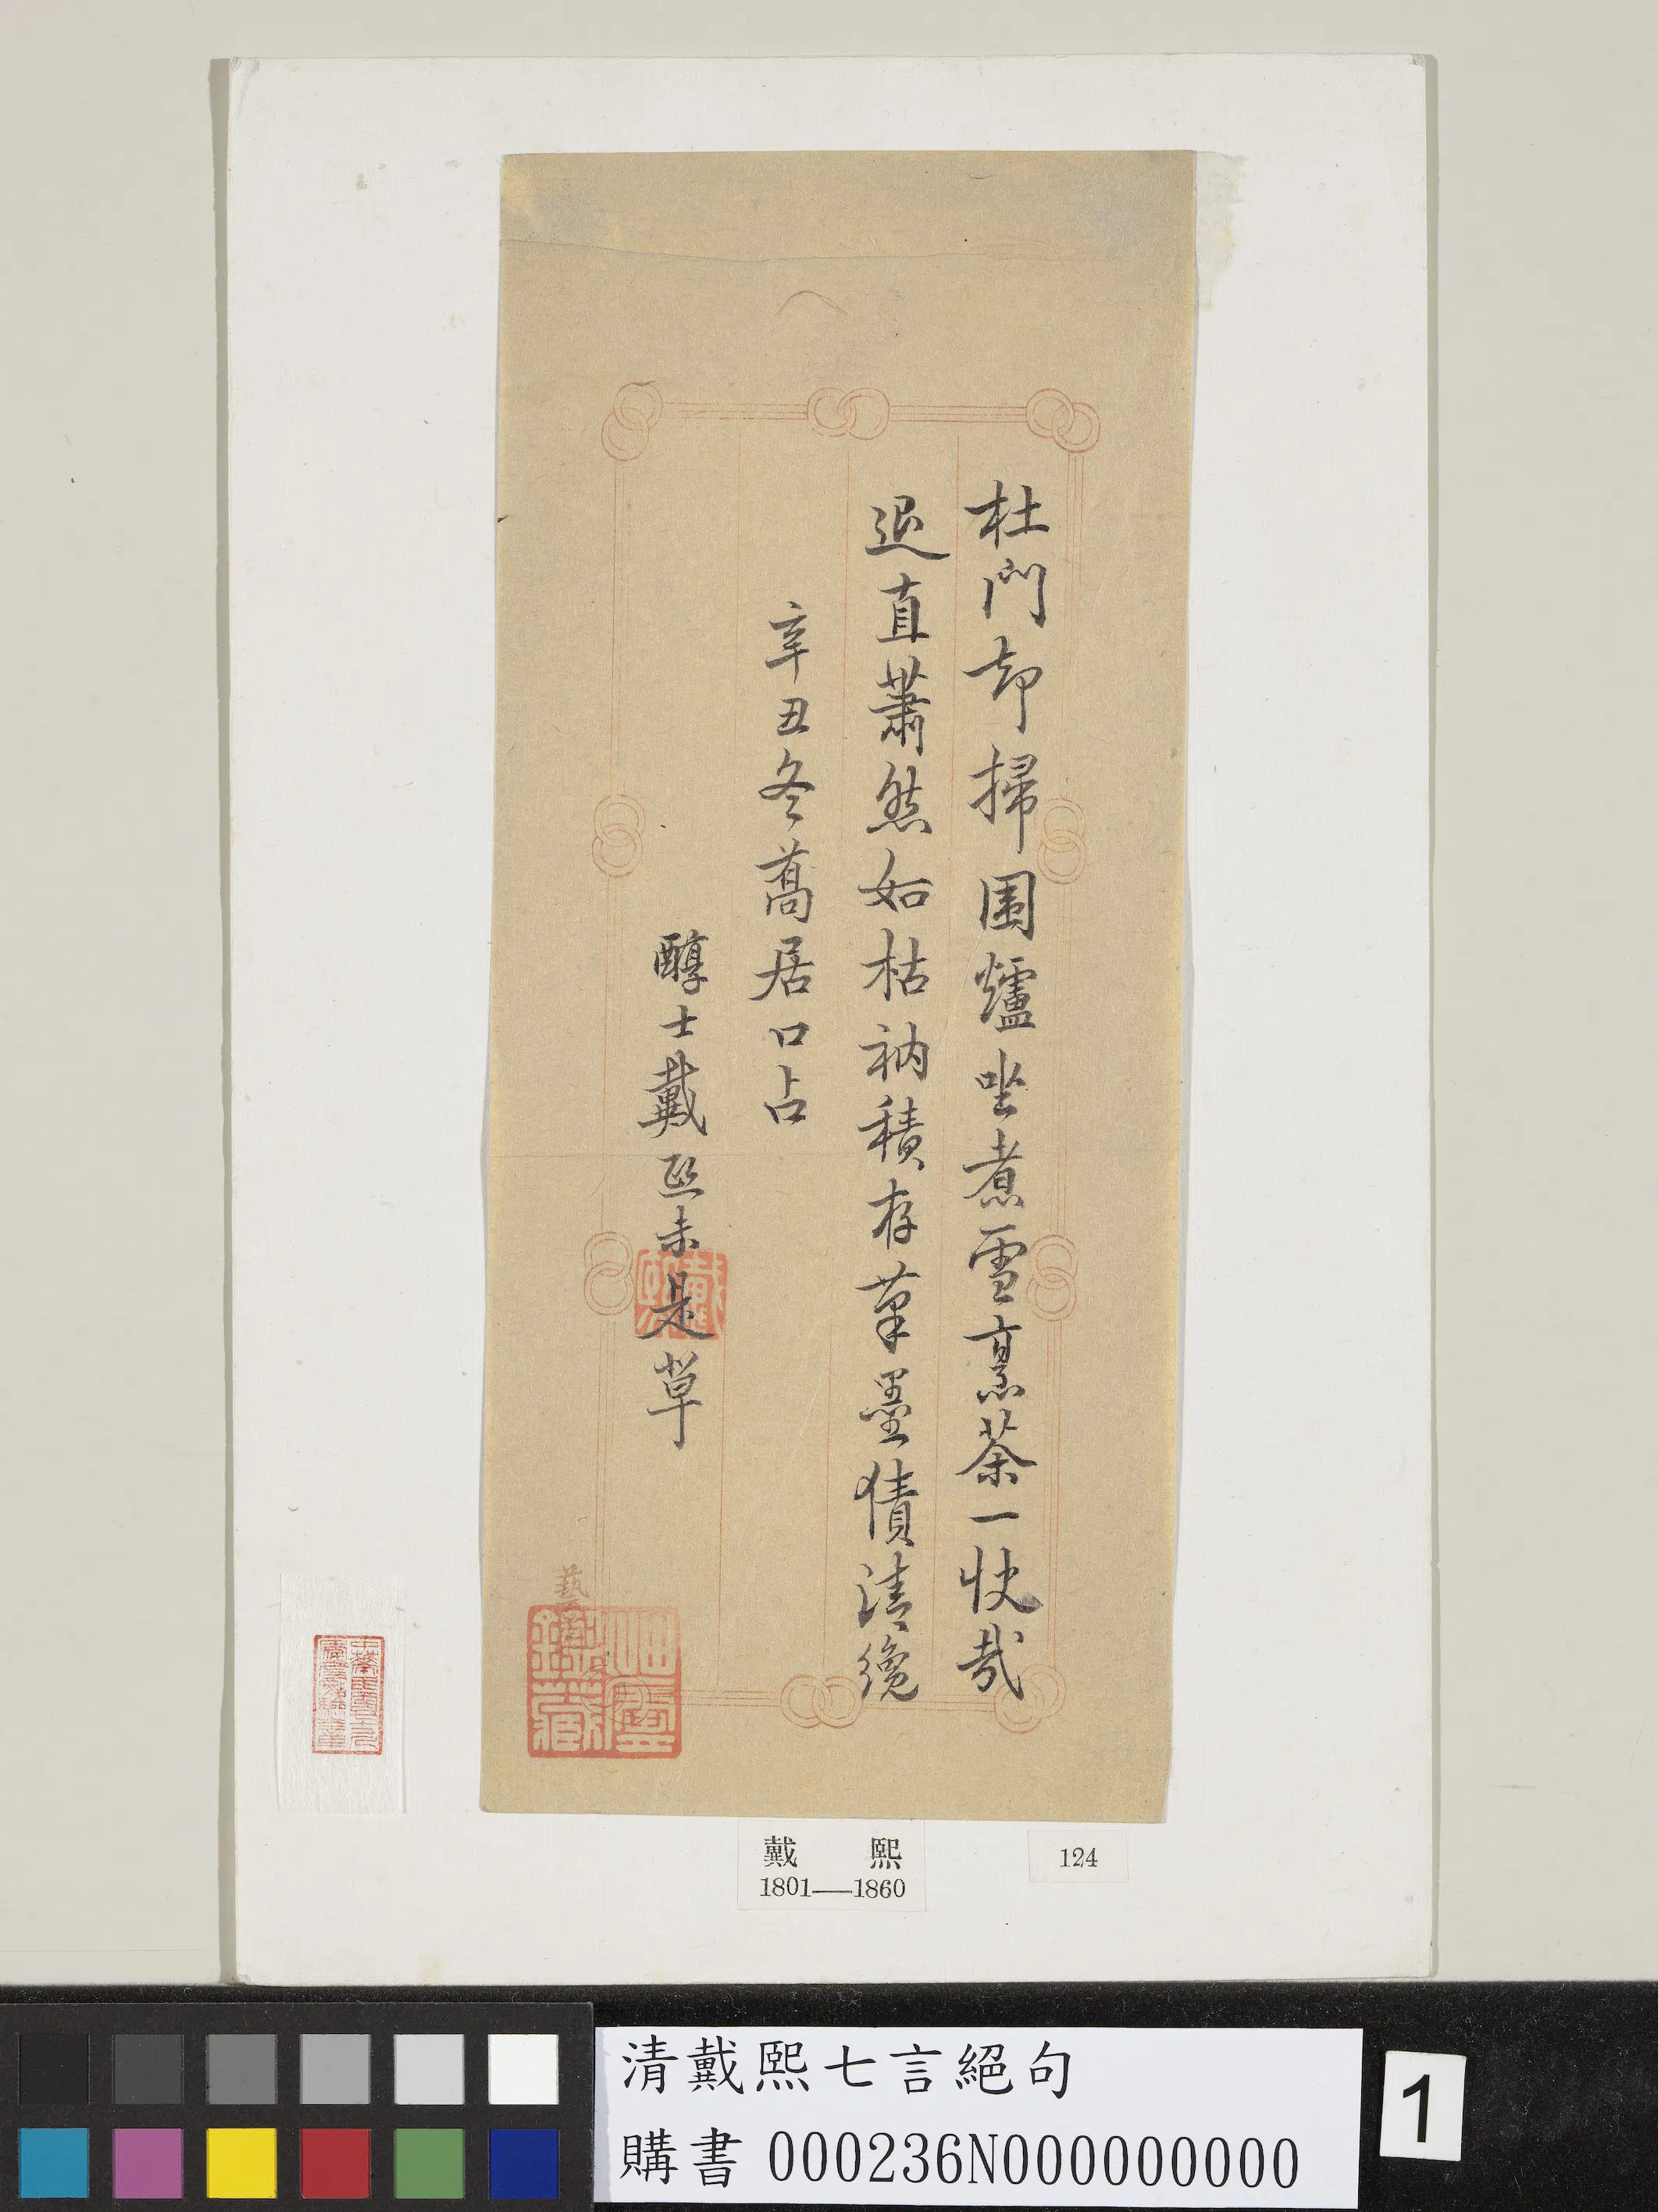 杜門却掃圍爐坐煮雪烹茶一快哉
退直蕭然如枯衲積存筆墨債清纔
辛丑冬蒿居口占
醇士戴熙未是草
戴熙
藝
珍藏
戴熙
1801—1860
124
清戴熙七言絕句
購書 000236N000000000
1